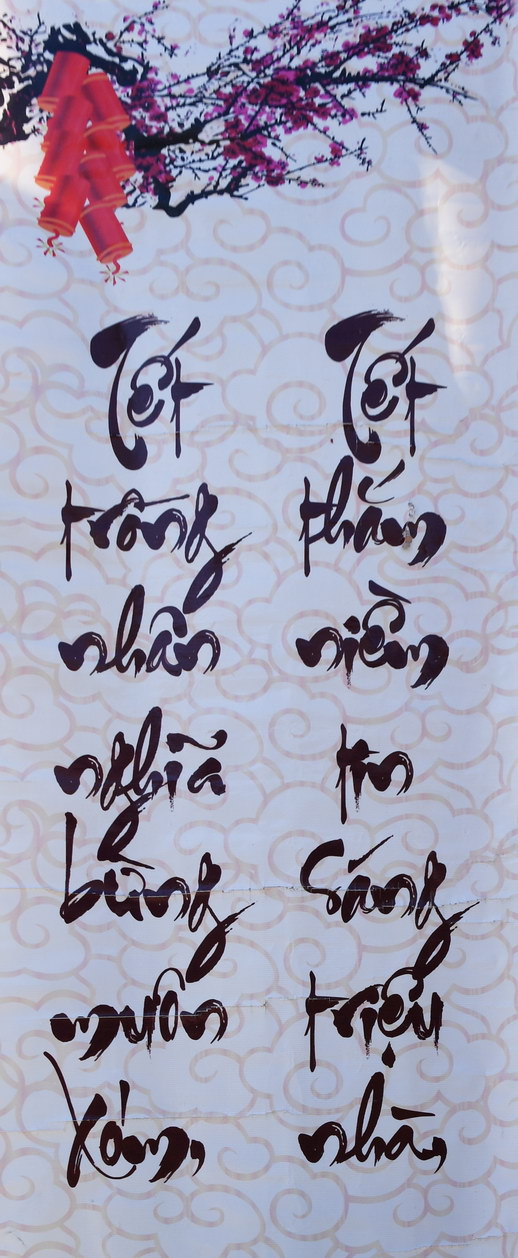 Tết
trồng
nhân
nghĩa
bừng
muôn
Xóm,
Tết
thắm
niềm
tin
Sáng
triệu
nhà,